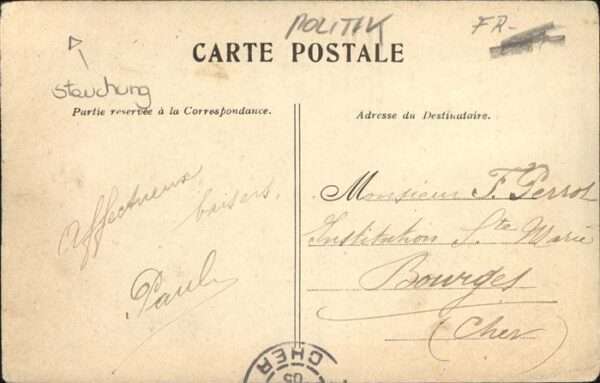 POLITIK
FR-
CARTE POSTALE
Stauchung
Partie reservée à la Correspondance.
Adresse du Destinataire.
Affectueux
baisers.
Paul
Monsieur F. Perrot
Institution Ste Marie
Bourges
(Cher)
CHER
05